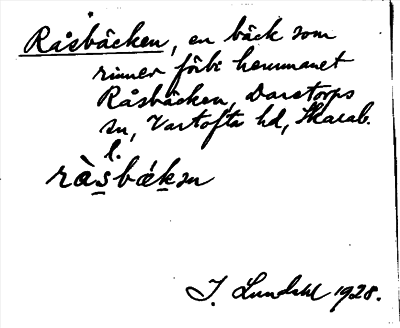 Råsbäcken, en bäck som
rinner förbi hemmanet
Råsbäcken, Daretorps
sn, Vartofta hd, Skarab.
l.
rå̀sbǽkən
J. Lundahl 1928.